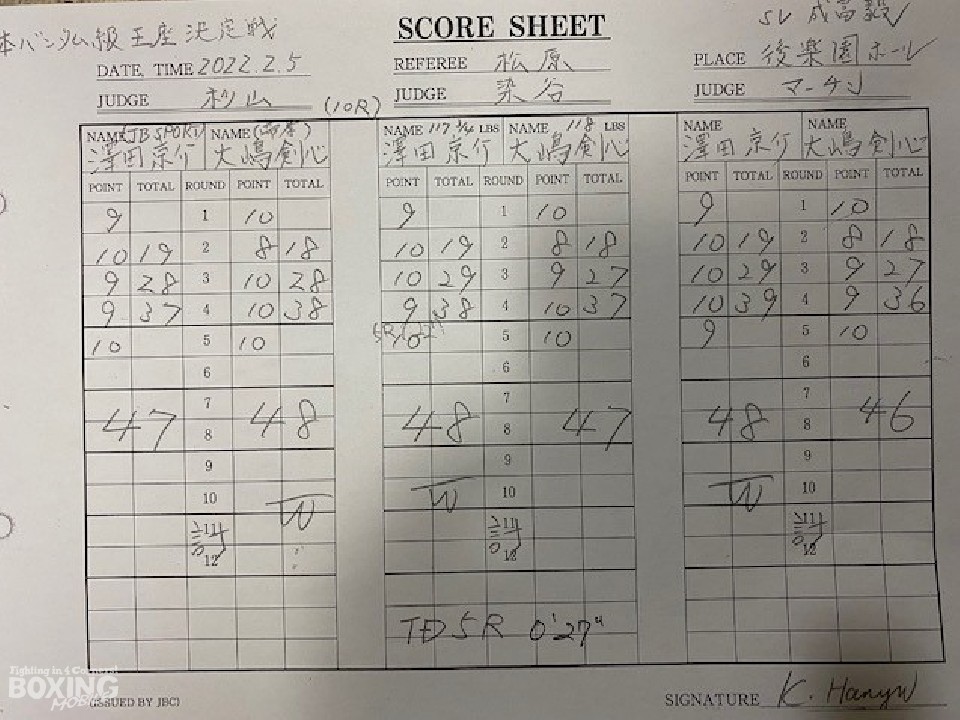 本バンタム級王座決定戦
SCORE SHEET
SV 成富毅
DATE, TIME 2022.2.5
REFEREE 松原
PLACE 後楽園ホール
JUDGE 杉山
(10R)
JUDGE 染谷
JUDGE マーチン
NAME JB SPORTS NAME
NAME 117 3/4 LBS NAME 118 LBS
NAME NAME
澤田京介 大嶋剣心
澤田京介 大嶋剣心
澤田京介 大嶋剣心
POINT TOTAL ROUND POINT TOTAL
POINT TOTAL ROUND POINT TOTAL
POINT TOTAL ROUND POINT TOTAL
9 1 10
9 1 10
9 1 10
10 19 2 8 18
10 19 2 8 18
10 19 2 8 18
9 28 3 10 28
10 29 3 9 27
10 29 3 9 27
9 37 4 10 38
9 38 4 10 37
10 39 4 9 36
10 5 10
10 5 10
9 5 10
6
6
6
7
7
7
47 8 48
48 8 47
48 8 46
9
9
9
10 W
W 10
W 10
計
計
計
12
12
12
TD 5R 0'27"
Fighting in 4 Corners!
BOXING
MOBILE
(ISSUED BY JBC)
SIGNATURE K. Hanyu